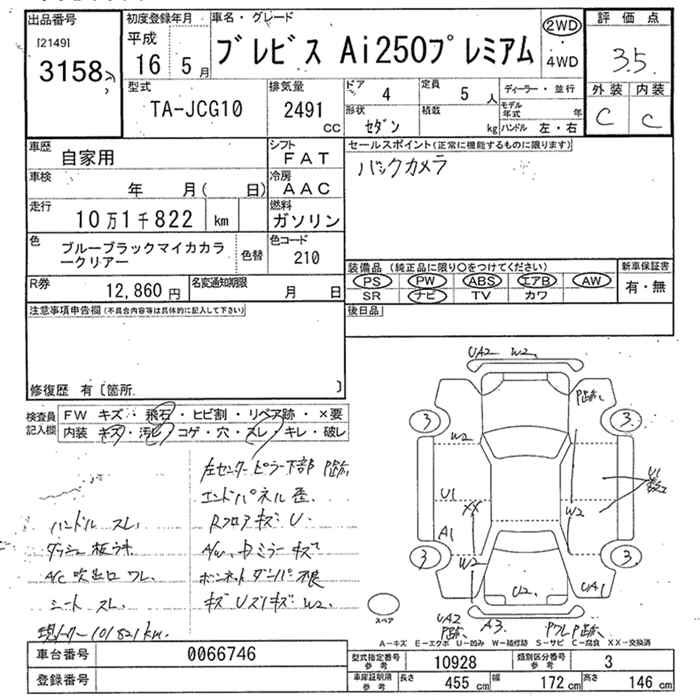 出品番号 初度登録年月 車名・グレード 評価点
[2149] 平成 ブレビス Ai250プレミアム 2WD 3.5
3158 16 5月 ・ 4WD
型式 排気量 ドア 4 定員 5人 ディーラー・並行 外装 内装
TA-JCG10 2491 CC 形状 セダン 積数 kg モデル年式 年 C C
ハンドル 左・右
車歴 自家用 シフト FAT セールスポイント(正常に機能するものに限ります)
車検 年 月( 日) 冷房 AAC バックカメラ
走行 10万1千822 km 燃料 ガソリン
色 ブルーブラックマイカカラークリアー 色替 色コード 210
装備品 (純正品に限り○をつけてください) 新車保証書
PS PW ABS エアB AW 有・無
SR ナビ TV カワ
R券 12,860円 名変通知期限 月 日
注意事項申告欄(不具合内容等は具体的に記入して下さい) 後日品
修復歴 有〔箇所. 〕
検査員記入欄 FW キズ・飛石・ヒビ割・リペア跡・×要
内装 キズ・汚レ・コゲ・穴・スレ・キレ・破レ
左センターピラー下部 P跡
エンドパネル歪.
ハンドル スレ. Rフロアキズ U.
A/C 吹出口 ワレ.
シート スレ. キズ W2
101821km.
UA2 W2
P跡
3 3.
W2
U1 U1
XX W2
A1
3 3.
W2
U2 UA1
UA2 A3
P跡
スペア
A-キズ E-エクボ U-凹み W-補修跡 S-サビ C-腐食 XX-交換済
車台番号 0066746 型式指定番号 参考 10928 類別区分番号 参考 3
登録番号 車庫証明用 参考 長さ 455cm 幅 172cm 高さ 146cm